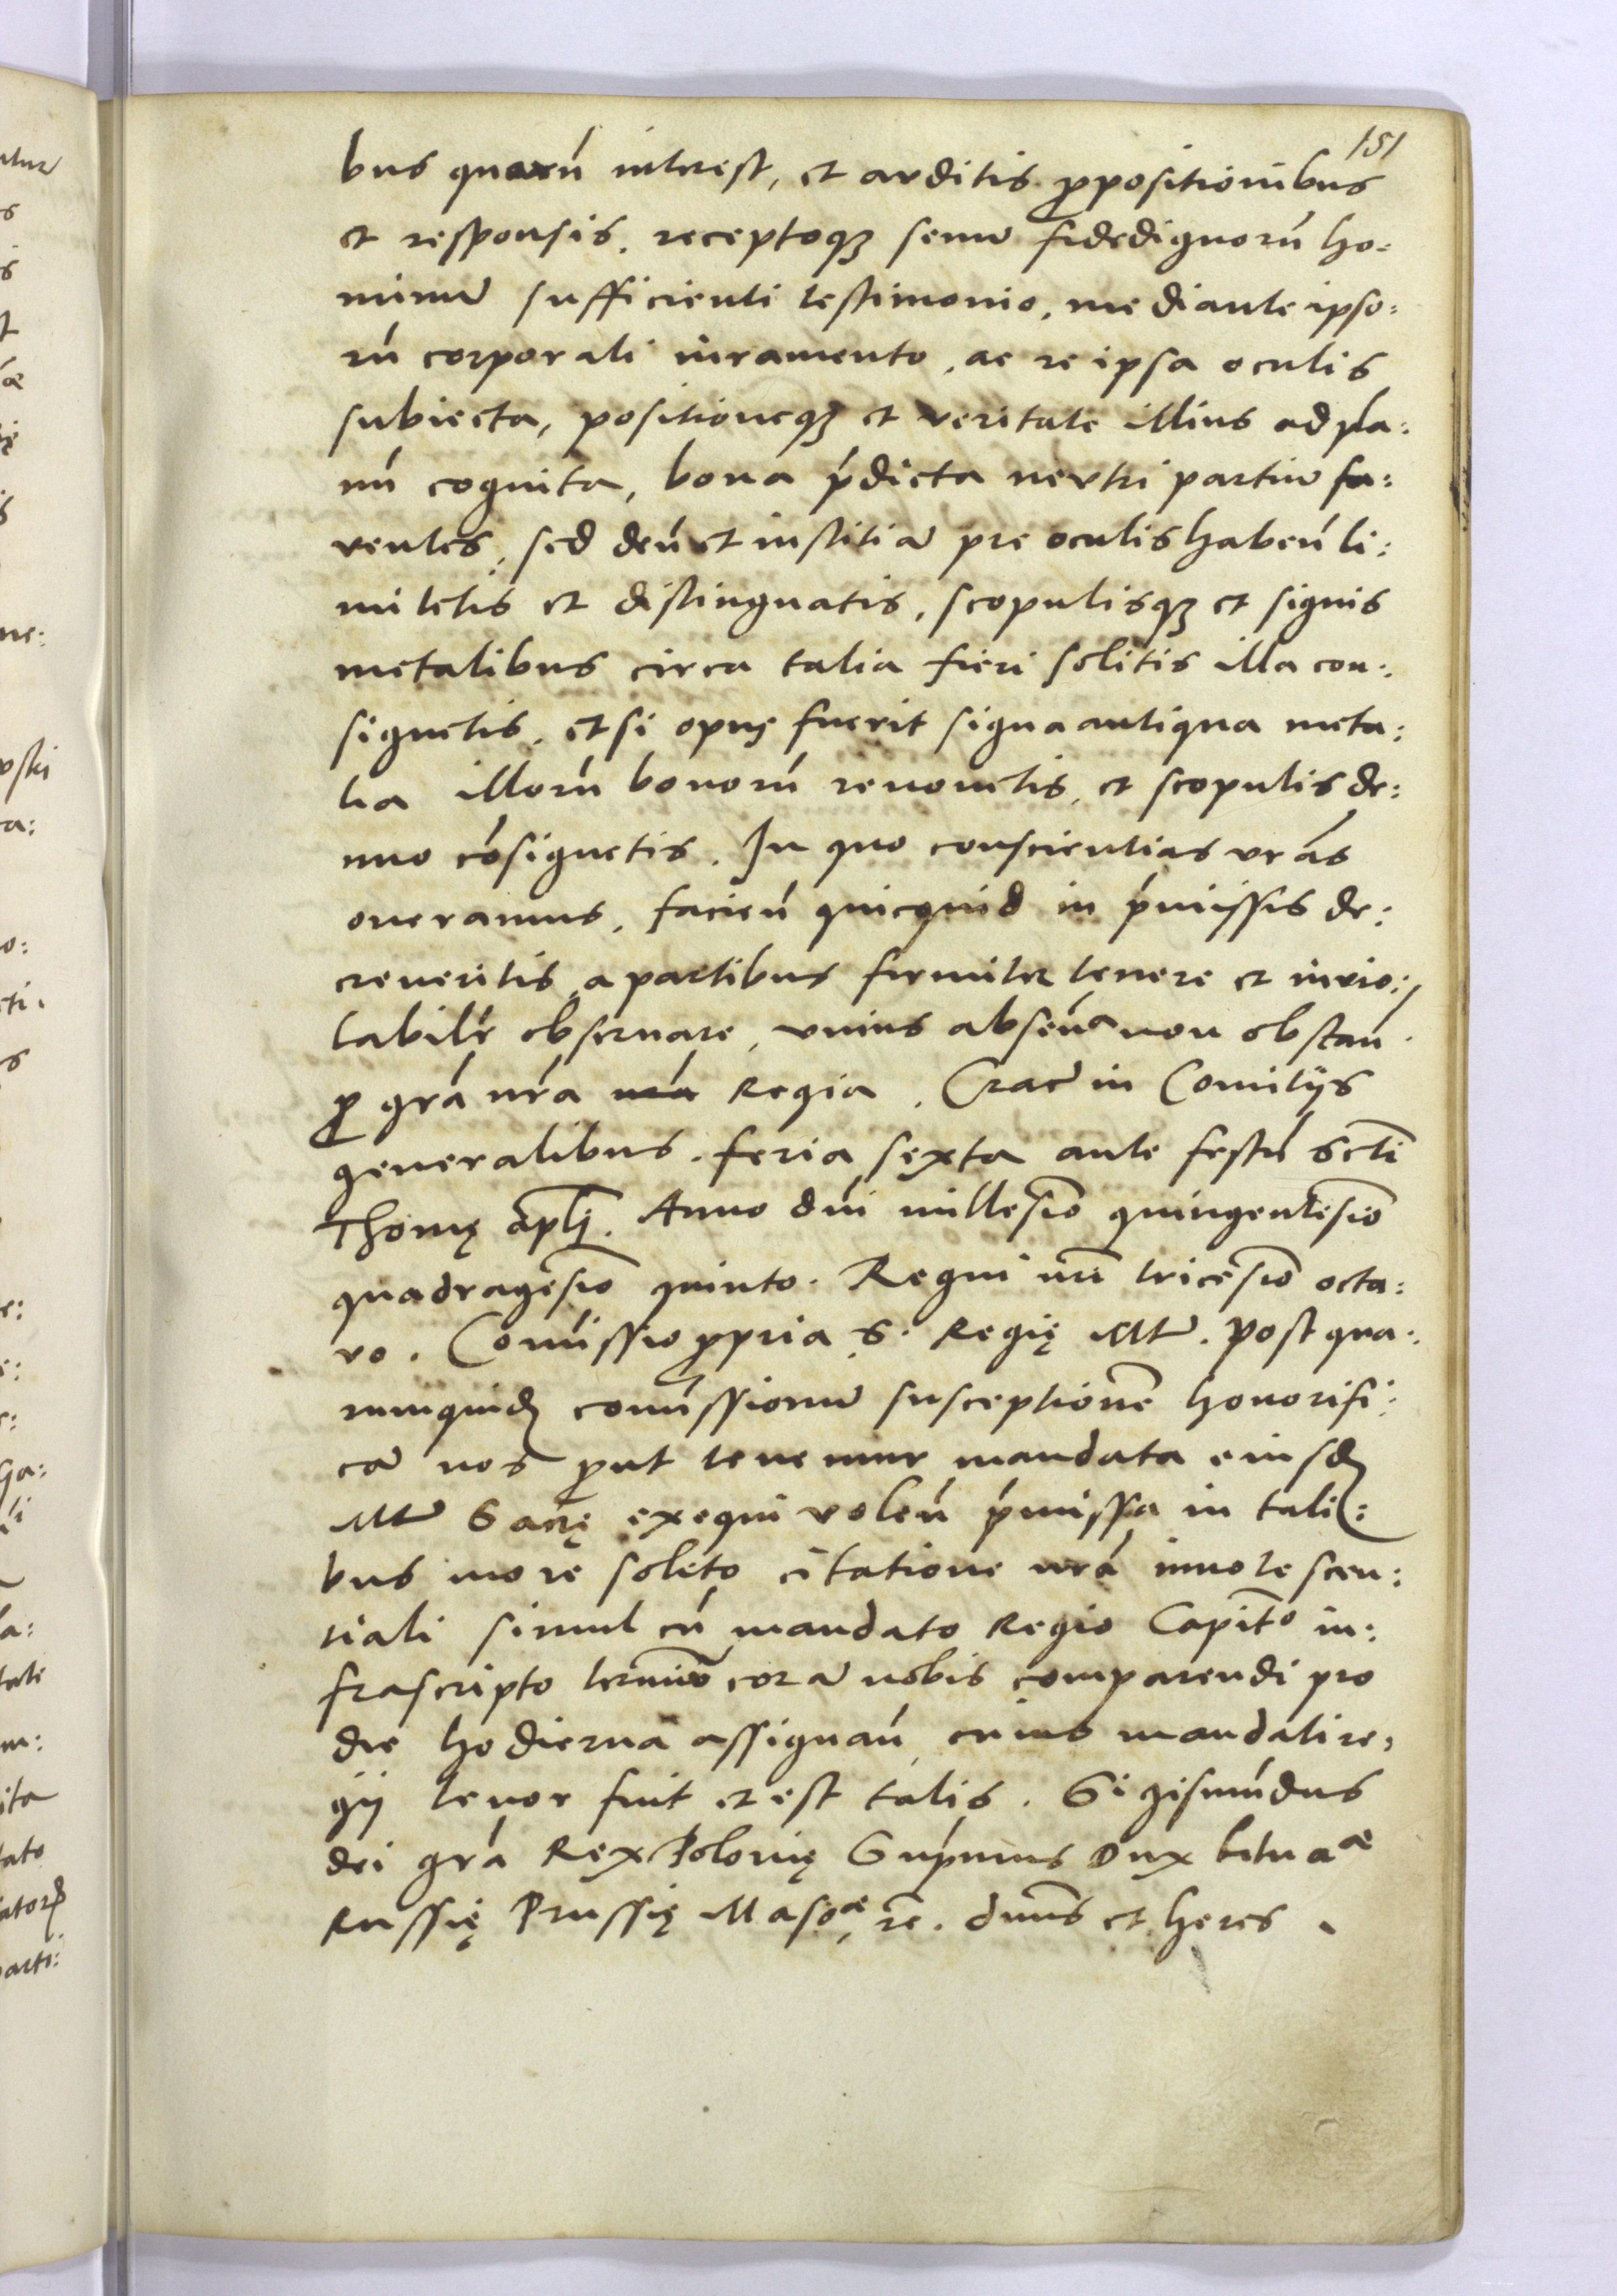 151
bus quorũ interest, et auditis ꝓpositionibus
et responsis, receptoqꝫ senũ fidedignorũ ho:
minũ sufficienti testimonio, mediante ipso:
rũ corporali iuramento, ac re ipsa oculis
subiecta, positioneqꝫ et veritate illius ad pla:
nũ cognita, bona p̃dicta neutri partiũ fa:
uentes, sed deũ et iustitiã pre oculis habeñ li:
mitetis et distinguatis, scopulisqꝫ et signis
metalibus circa talia fieri solitis illa con:
signetis, et si opus fuerit signa antiqua meta:
lia illorũ bonorũ renouetis, et scopulis de:
nuo cõsignetis. In quo conscientias vrãs
oneramus, facieñ quicquid in p̃missis de:
creueritis, a partibus firmiter tenere et inuio:
labilr̃ obseruare, vnius abseñª non obstañ.
ꝓ grã nrã Regia. Crac̃ in Comitijs
generalibus. feria sexta ante festũ Scti
Thomę apli. Anno dñi millesio quingentesio
quadragesio quinto. Regni nři tricesio octa:
vo. Com̃issio ꝓpria S. Regię Mtt̃. Postqua:
rumquidē com̃issionũ susceptionē honorifi:
cã nos ꝓut tenemur mandata eiusdē
Mtt̃ Sacrę exequi voleñ p̃missa in tali:
bus more solito citatione nrã innotescen:
tiali simul cũ mandato Regio Capitº in:
frascripto termiō corã nobis comparendi pro
die hodierna assignañ, cuius mandati re:
gij tenor fuit et est talis. Sigismũdus
dei grã Rex Polonię Sup̃mus Dux Lituaæ
Russię Prussię Masoæ, rc̃. dnũs et heres.